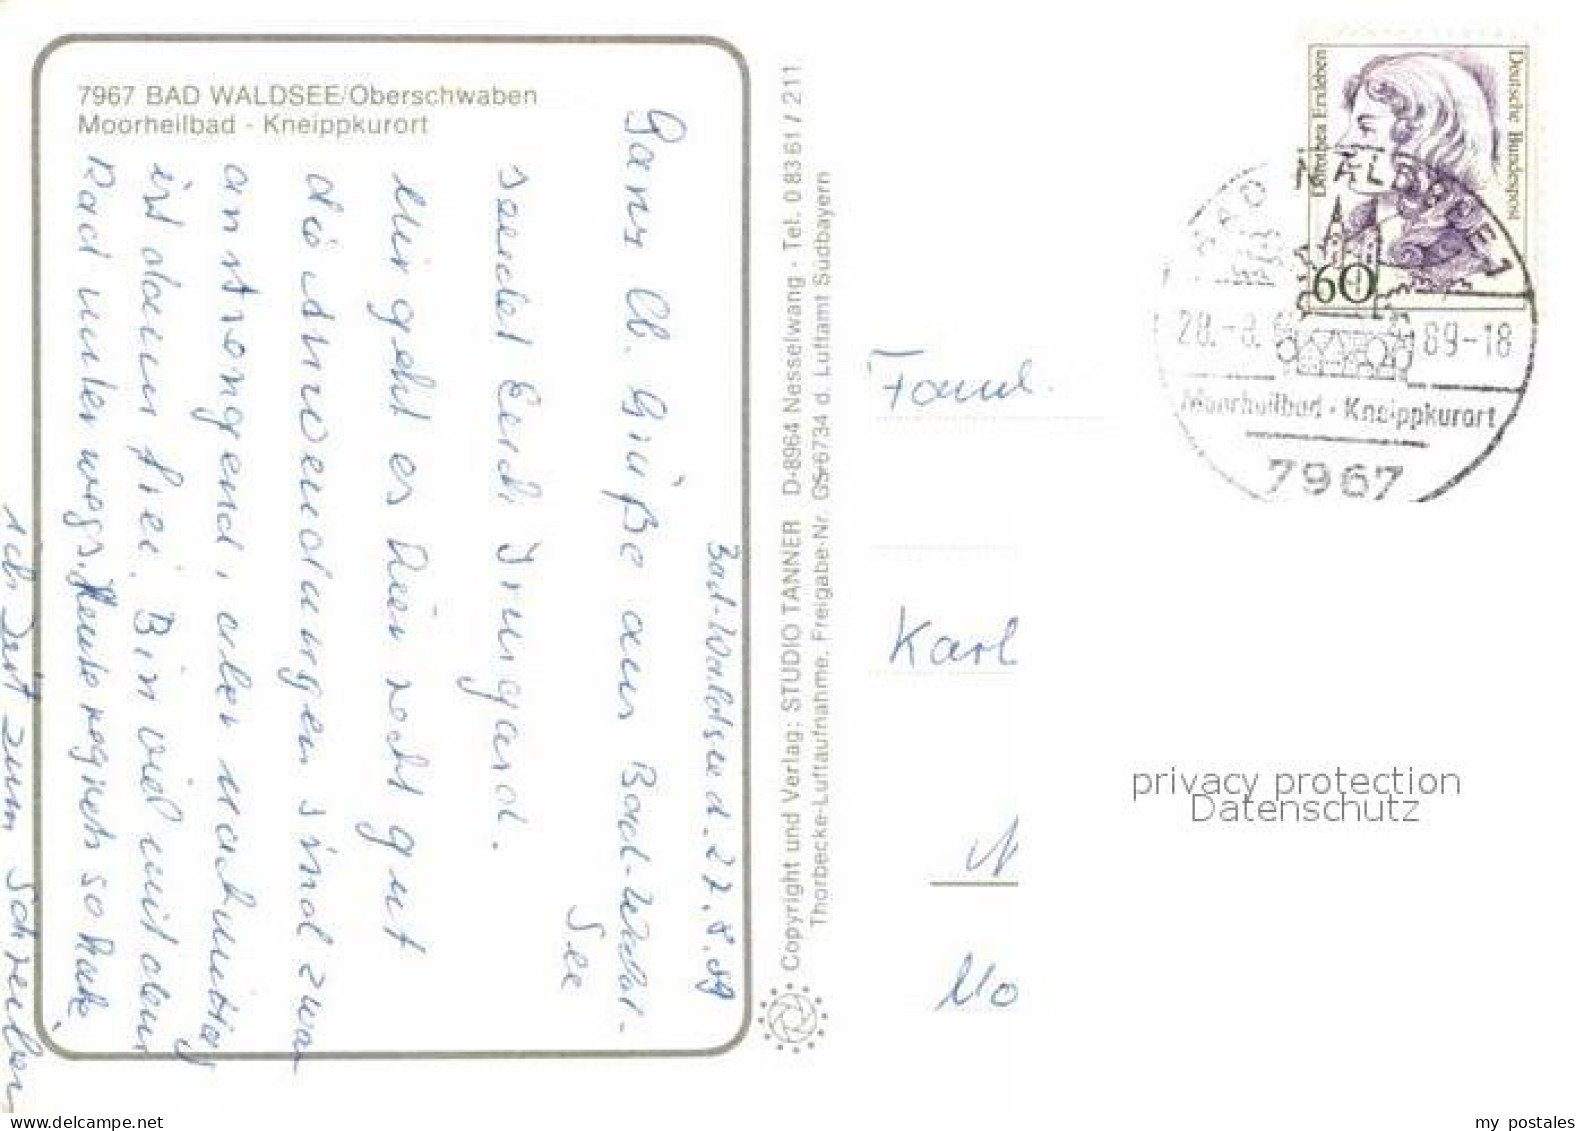 7967 BAD WALDSEE/Oberschwaben
Moorheilbad - Kneippkurort
Bad-Waldsee d. 27.8.89
Ganz lb. Grüße aus Bad-Wald-
See
sendet Euch Irmgard.
Mir geht es hier recht gut
die Anwendungen sind zwar
anstrengend, aber nachmittag
ist dann frei. Bin viel mit dem
Rad unterwegs. Heute regnets so habe
ich Zeit zum Schreiben
Copyright und Verlag: STUDIO TANNER D-8964 Nesselwang - Tel. 0 83 61 / 2 11
Thorbecke-Luftaufnahme, Freigabe-Nr. GS-6734 d. Luftamt Südbayern
Dorothea Erxleben
Deutsche Bundespost
60
BAD WALDSEE 1
28.-8. 89-18
Moorheilbad - Kneippkurort
7967
Faml.
Karl
M
Mo
privacy protection
Datenschutz
my postales